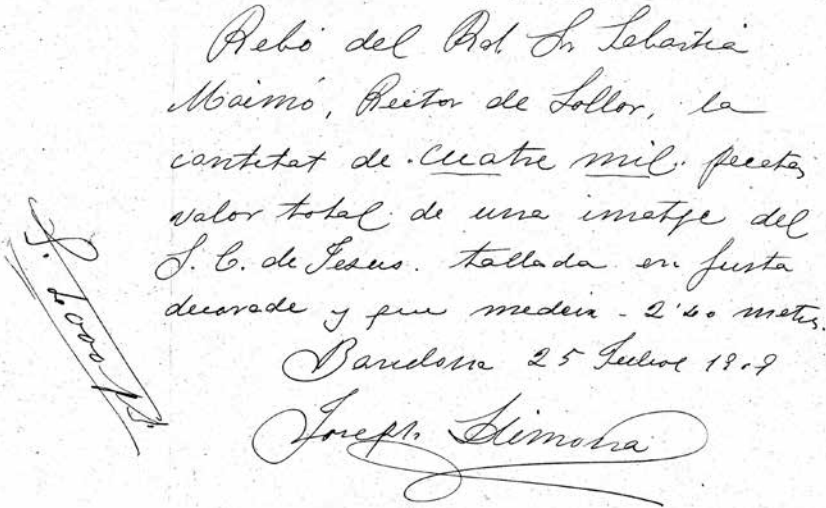 Rebó del Rd Sr Sebastiá
Maimó, Rector de Sollor, la
cantitat de cuatre mil pecetas
valor total de una imatje del
S. C. de Jesus. tallada en fusta
decorade y que medeix - 2'40 metres.
Barcelona 25 Juliol 1909
Joseph Llimona
S. 4000 P.